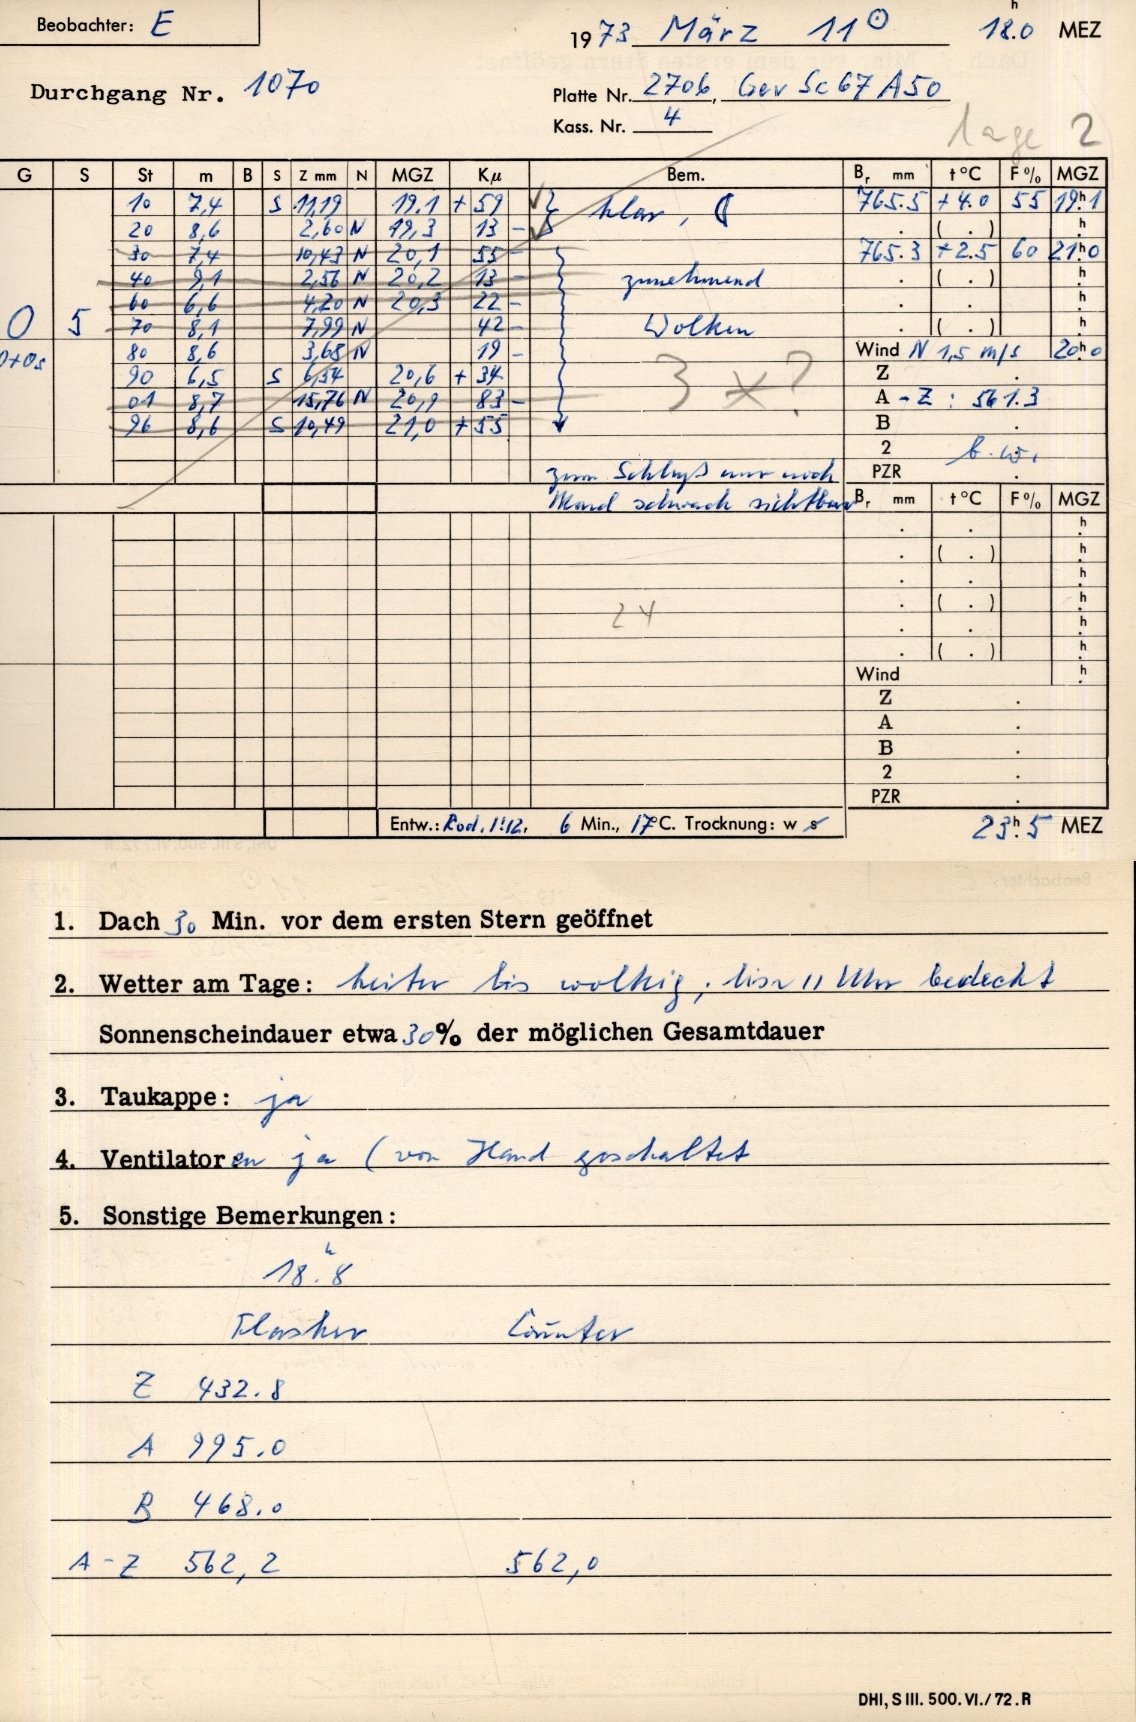 Beobachter: E
1973 März 11⊙ 18.0ʰ MEZ
Durchgang Nr. 1070
Platte Nr. 2706, Gev Sc67 A50
Kass. Nr. 4
Lage 2
G S St m B S Z mm N MGZ Kμ Bem. Br mm t°C F% MGZ
10 7,4 S 11,19 19.1 + 59 klar, ☾ 765.5 +4.0 55 19ʰ.1
20 8,6 2,60 N 19,3 13 - . ( . ) h.
30 7,4 10,43 N 20,1 55 - 765.3 +2.5 60 21ʰ.0
40 9,1 2,56 N 20,2 13 - zunehmend . ( . ) h.
60 6,6 4,20 N 20,3 22 - . . h.
0 5 70 8,1 7,99 N 42 - Wolken . ( . ) h.
80 8,6 3,68 N 19 - Wind N 1,5 m/s 20ʰ.0
90 6,5 S 6,54 20,6 + 34 3 x? Z .
01 8,7 15,76 N 20,9 83 - A - Z : 561.3
96 8,6 S 10,49 21,0 + 55 B .
2 b.w.
zum Schluß nur noch PZR .
Mond schwach sichtbar Br mm t°C F% MGZ
. . h.
. ( . ) h.
. . h.
24 . ( . ) h.
. . h.
. ( . ) h.
Wind h.
Z .
A .
B .
2 .
PZR .
Entw.: Rod. 1:12, 6 Min., 17°C. Trocknung: w s 23ʰ.5 MEZ
1. Dach 30 Min. vor dem ersten Stern geöffnet
2. Wetter am Tage: heiter bis wolkig; bis 11 Uhr bedeckt
Sonnenscheindauer etwa 30% der möglichen Gesamtdauer
3. Taukappe: ja
4. Ventilatoren ja (von Hand geschaltet
5. Sonstige Bemerkungen:
18.ʰ8
Flasher Counter
Z 432.8
A 995.0
B 468.0
A-Z 562,2 562,0
DHI, S III. 500. VI./72. R